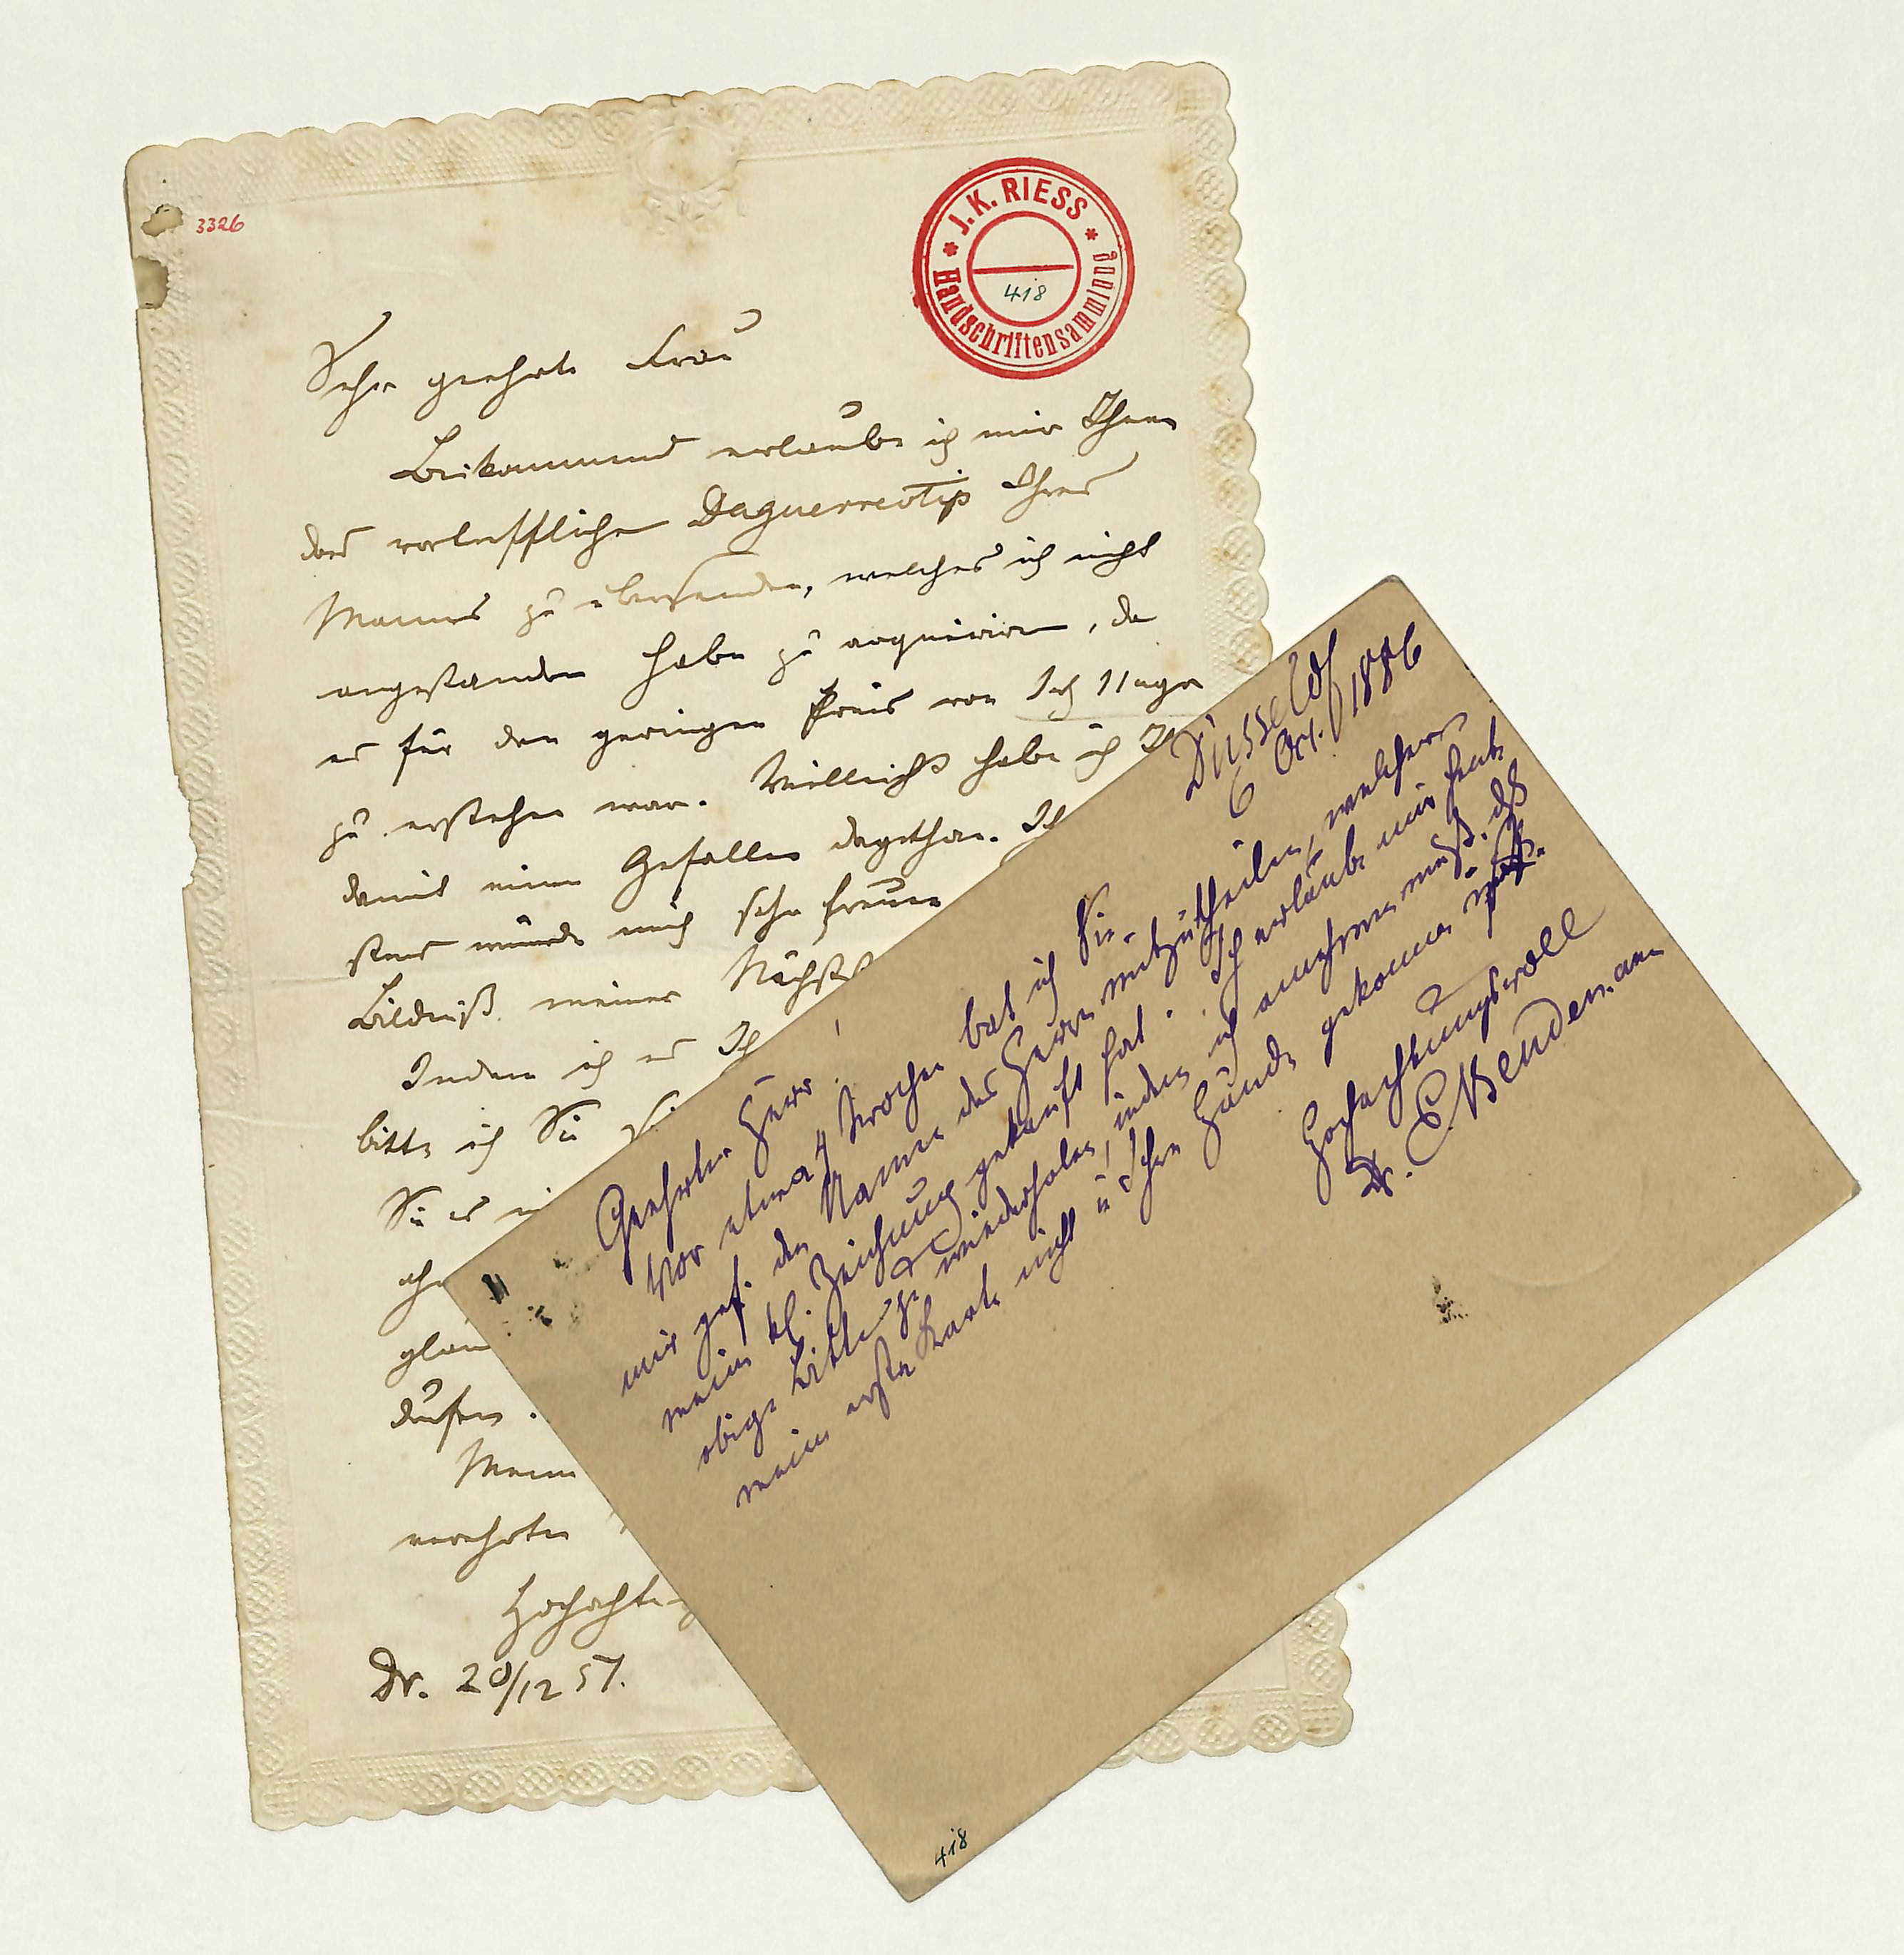 3326
J. K. RIESS
Handschriftensammlung
418
Sehr geehrte Frau
Beikommend erlaube ich mir Ihnen
das vortreffliche Daguerreotip Ihres
Mannes zu übersenden, welches ich nicht
angestanden habe zu acquiriren, da
es für den geringen Preis von 11 ngr
zu erstehen war. Vielleicht habe ich
damit einen Gefallen dagethan. Ich
stens würde mich sehr freuen
Bildniß meiner Nächst
Indem ich es
bitte ich Sie
Sie es
dürfen.
Mein
verehrten
Hochacht
Dr. 20/12 57.
Düsseldf
6 Oct. 1886
Geehrter Herr!
Vor etwa 4 Wochen bat ich Sie
mir gef. den Namen des Herrn mitzutheilen, welcher
meine kl. Zeichnung gekauft hat. Ich erlaube mir heute
obige Bitte zu wiederholen, indem ich annehmen muß, dß
meine erste Karte nicht in Ihre Hände gekommen ist.
Hochachtungsvoll
Dr. E. Bendemann
418